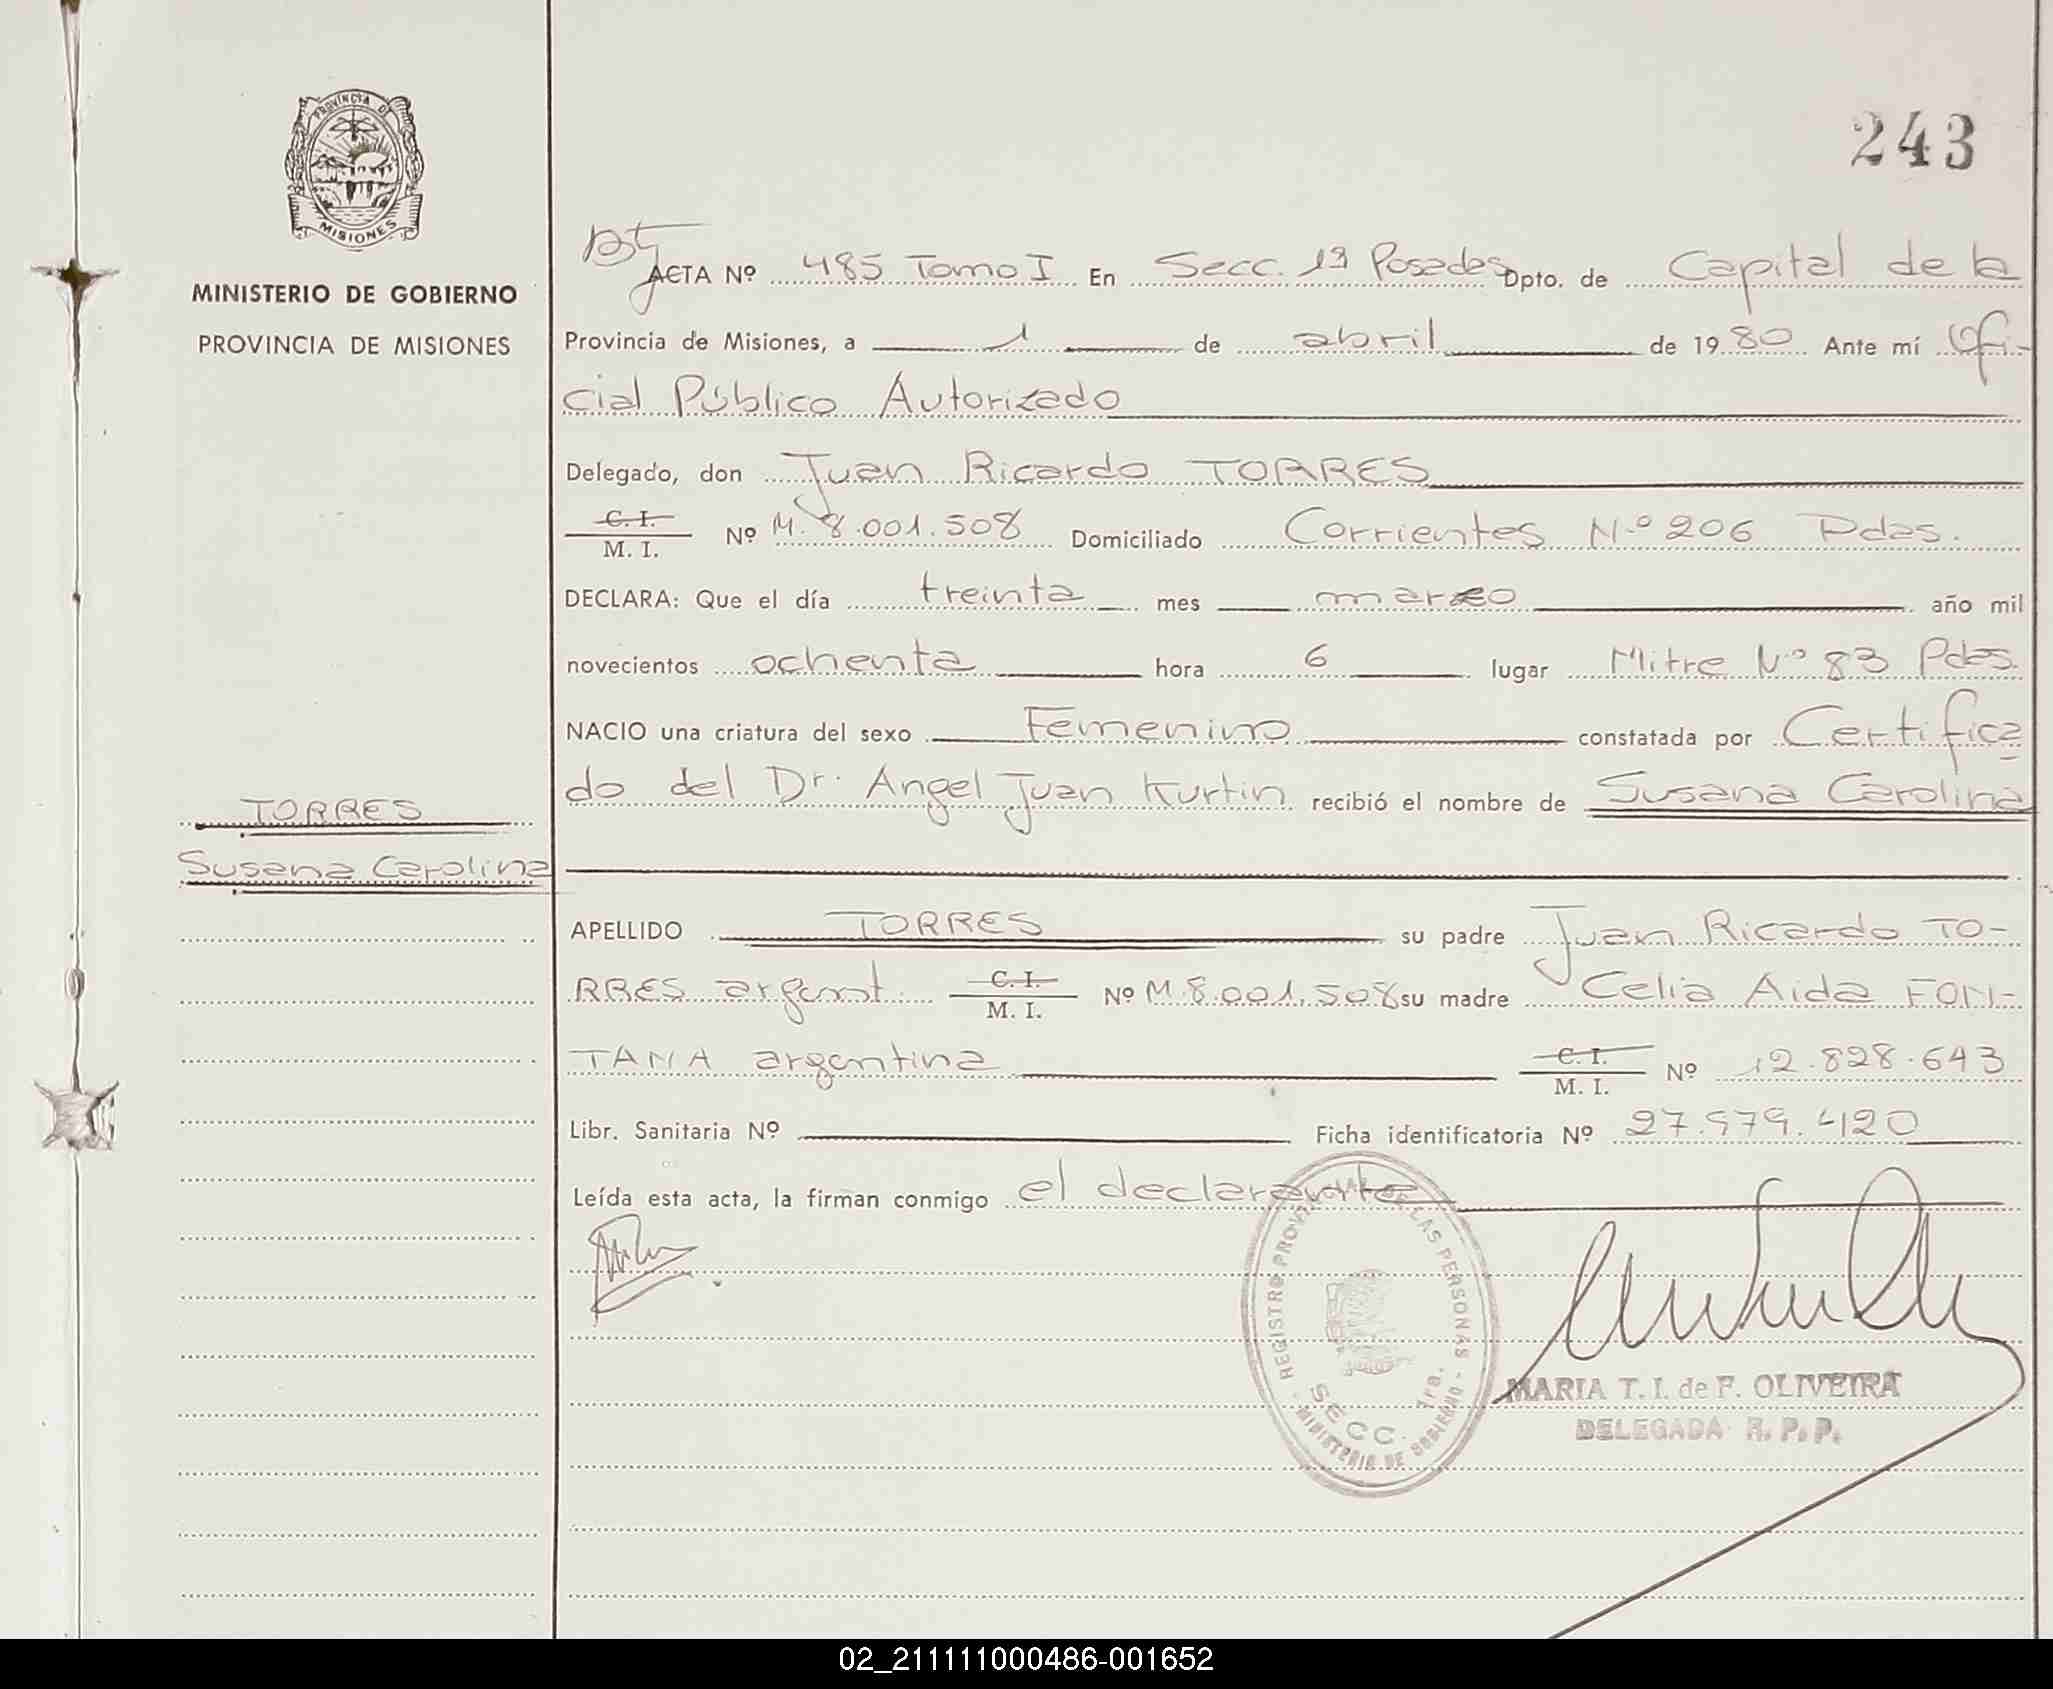 PROVINCIA DE
MISIONES
MINISTERIO DE GOBIERNO
PROVINCIA DE MISIONES
TORRES
Susana Carolina
243
ACTA Nº 485 Tomo I En Secc. 1ª Posadas Dpto. de Capital de la
Provincia de Misiones, a 1 de abril de 1980 Ante mí Ofi-
cial Público Autorizado
Delegado, don Juan Ricardo TORRES
C. I.
M. I. Nº M. 8.001.508 Domiciliado Corrientes Nº 206 Pdas.
DECLARA: Que el día treinta mes marzo año mil
novecientos ochenta hora 6 lugar Mitre Nº 83 Pdas.
NACIO una criatura del sexo Femenino constatada por Certifica
do del Dr. Angel Juan Kurtin recibió el nombre de Susana Carolina
APELLIDO TORRES su padre Juan Ricardo TO-
RRES argent. C. I. M. I. Nº M.8.001.508 su madre Celia Aida FON-
TANA argentina C. I. M. I. Nº 12.828.643
Libr. Sanitaria Nº Ficha identificatoria Nº 27.979.420
Leída esta acta, la firman conmigo el declarante
REGISTRO PROVINCIAL DE LAS PERSONAS
SECC. 1ra.
MINISTERIO DE GOBIERNO
MARIA T. I. de F. OLIVEIRA
DELEGADA R. P. P.
02_211111000486-001652